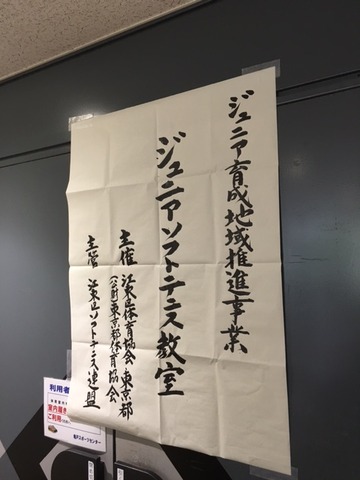 ジュニア育成地域推進事業
ジュニアソフトテニス教室
主催 江東区体育協会 東京都
(公財)東京都体育協会
主管 江東区ソフトテニス連盟
利用者
室内履き
ご利用